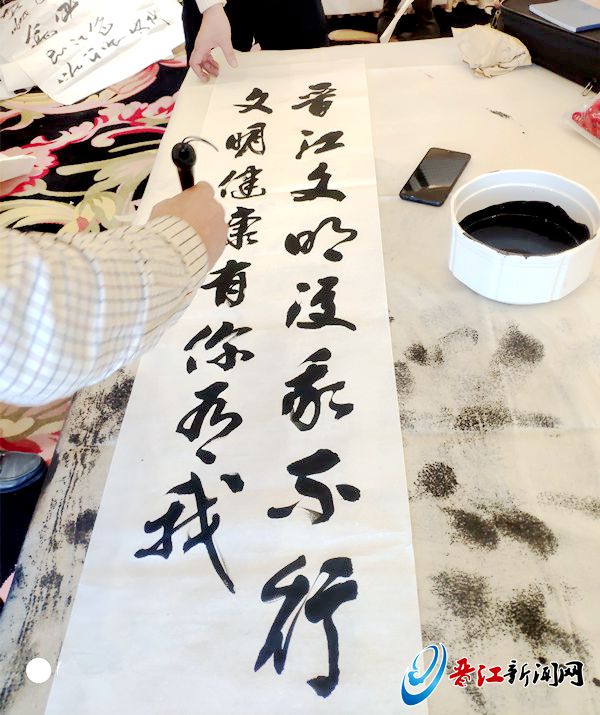 晋江文明没我不行
文明健康有你有我
晋江新闻网